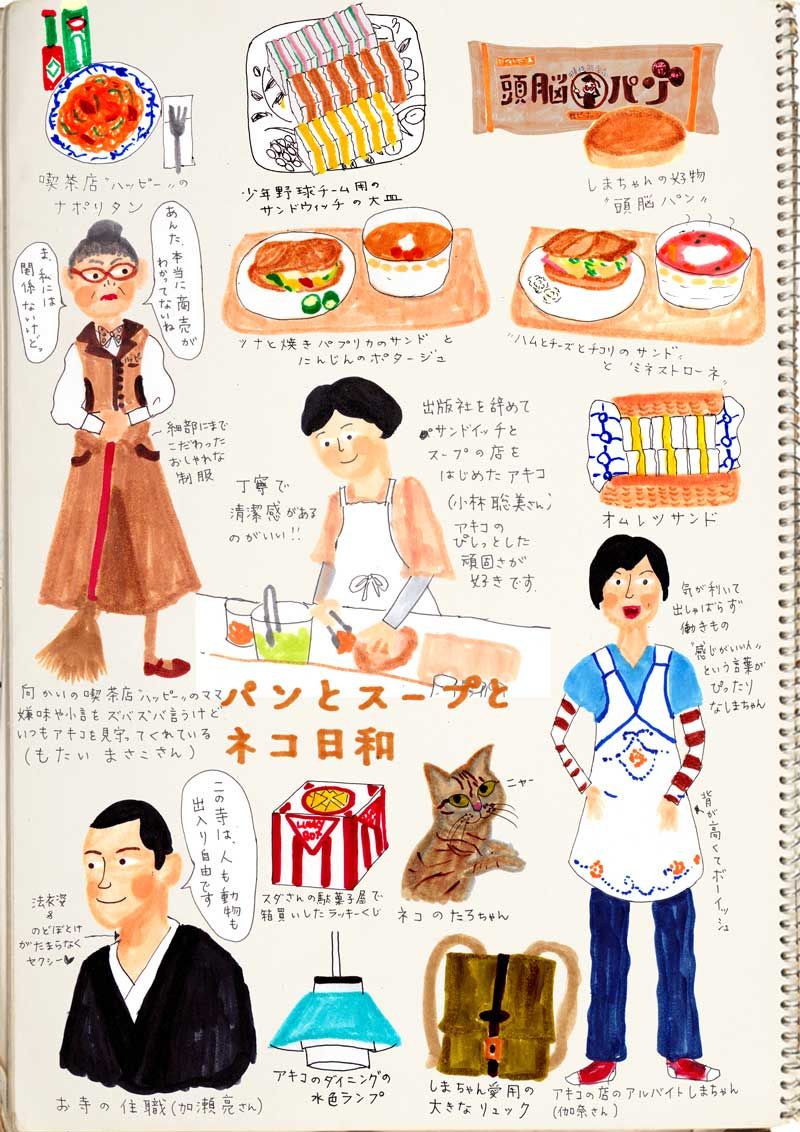 喫茶店"ハッピー"の
ナポリタン
少年野球チーム用の
サンドウィッチの大皿
頭脳パン
しまちゃんの好物
"頭脳パン"
あんた、本当に商売が
わかってないね
ま、私には
関係ないけどッ
細部にまで
こだわった
おしゃれな
制服
ツナと焼きパプリカのサンドと
にんじんのポタージュ
"ハムとチーズとチコリのサンド"
と"ミネストローネ"
丁寧で
清潔感がある
のがいい!!
出版社を辞めて
サンドイッチと
スープの店を
はじめたアキコ
(小林聡美さん)
アキコの
ぴしっとした
頑固さが
好きです。
オムレツサンド
気が利いて
出しゃばらず
働きもの
"感じがいい人"
という言葉が
ぴったり
なしまちゃん
向かいの喫茶店"ハッピー"のママ
嫌味や小言をズバズバ言うけど
いつもアキコを見守ってくれている
(もたいまさこさん)
パンとスープと
ネコ日和
この寺は、人も動物も
出入り自由です
法衣姿
&
のどぼとけ
がたまらなく
セクシー♥
お寺の住職(加瀬亮さん)
スダさんの駄菓子屋で
箱買いしたラッキーくじ
ニャー
ネコのたろちゃん
背が高くてボーイッシュ
アキコのダイニングの
水色ランプ
しまちゃん愛用の
大きなリュック
アキコの店のアルバイトしまちゃん
(伽奈さん)